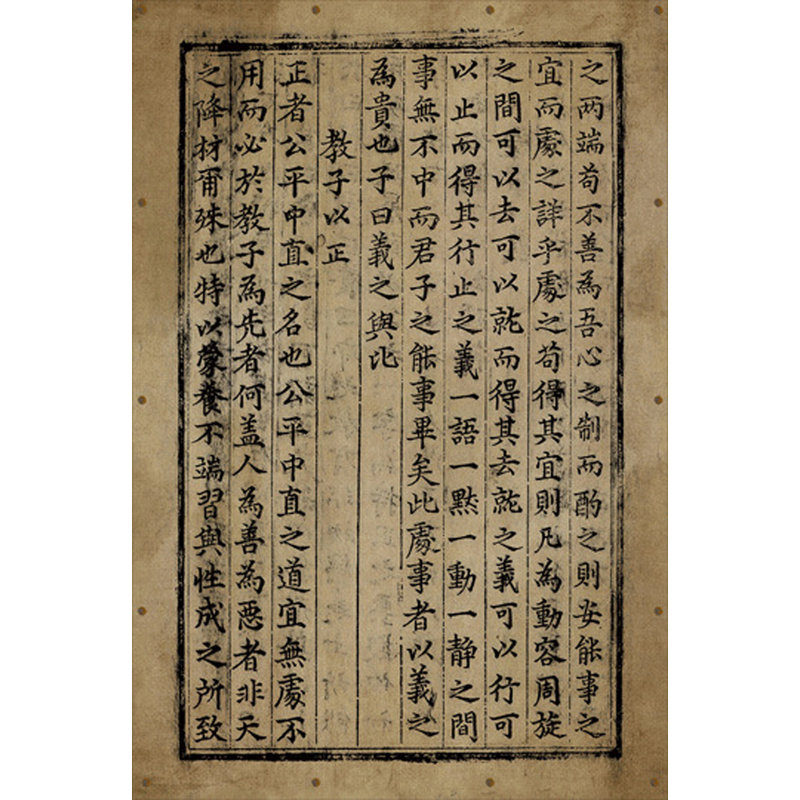 之两端苟不善為吾心之制而酌之則安能事之
宜而處之詳乎處之苟得其宜則凡為動容周旋
之間可以去可以就而得其去就之義可以行可
以止而得其行止之義一語一黙一動一静之間
事無不中而君子之能事畢矣此處事者以義之
為貴也子曰義之與比
教子以正
正者公平中直之名也公平中直之道宜無處不
用而必於教子為先者何盖人為善為惡者非天
之降材爾殊也特以蒙養不端習與性成之所致